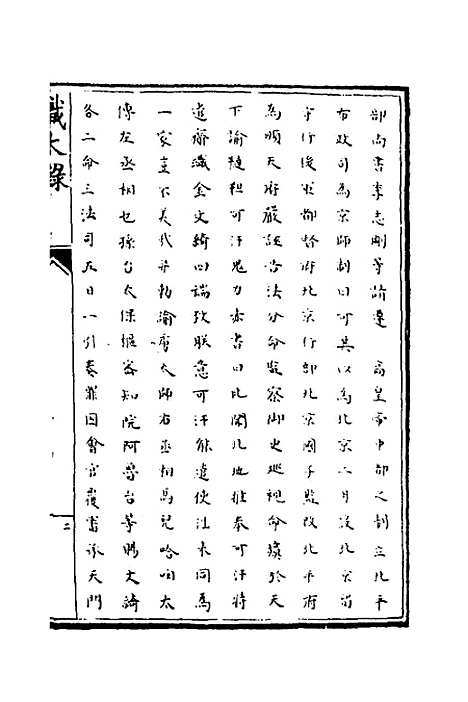 部尚書李志剛等請遵 高皇帝中都之制立北平
布政司為京師制曰可其以為北京二月設北京留
守行後軍都督府北京行部北京國子監改北平府
為順天府嚴誣告法分命監察御史巡視命瘞於天
下諭韃靼可汗鬼力赤書曰比聞北地推奉可汗特
遣齎織金文綺四端致朕意可汗能遣使往來同為
一家豈不美哉并勅諭虜太師右丞相馬兒哈咱太
傅左丞相也孫台太保樞密知院阿魯台等賜文綺
各二命三法司五日一引奏罪囚會官覆審承天門
識大錄
二